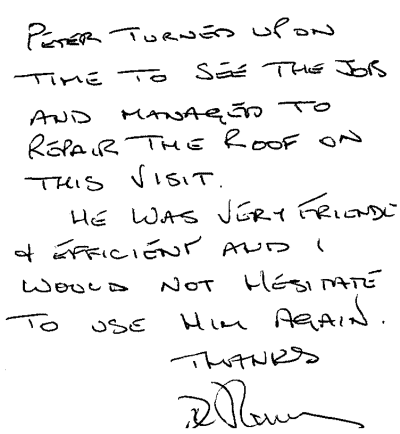 PETER TURNED UP ON
TIME TO SEE THE JOB
AND MANAGED TO
REPAIR THE ROOF ON
THIS VISIT.
HE WAS VERY FRIENDL
& EFFICIENT AND I
WOULD NOT HESITATE
TO USE HIM AGAIN.
THANKS